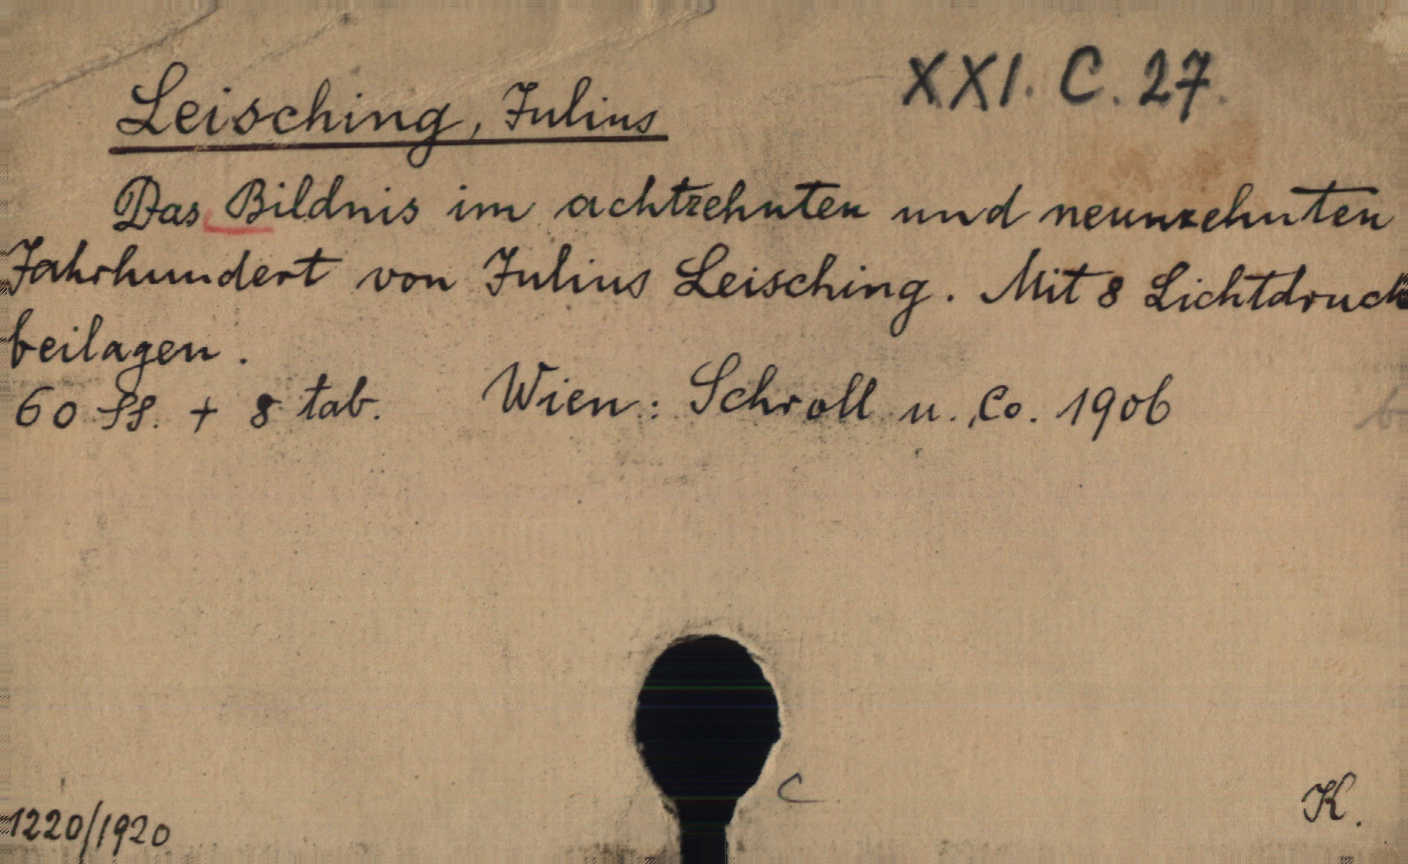 XXI. C. 27.
Leisching, Julius
Das Bildnis im achtzehnten und neunzehnten
Jahrhundert von Julius Leisching. Mit 8 Lichtdruck
beilagen.
60 SS. + 8 tab. Wien: Schroll u. Co. 1906
b
c
1220/1920
K.